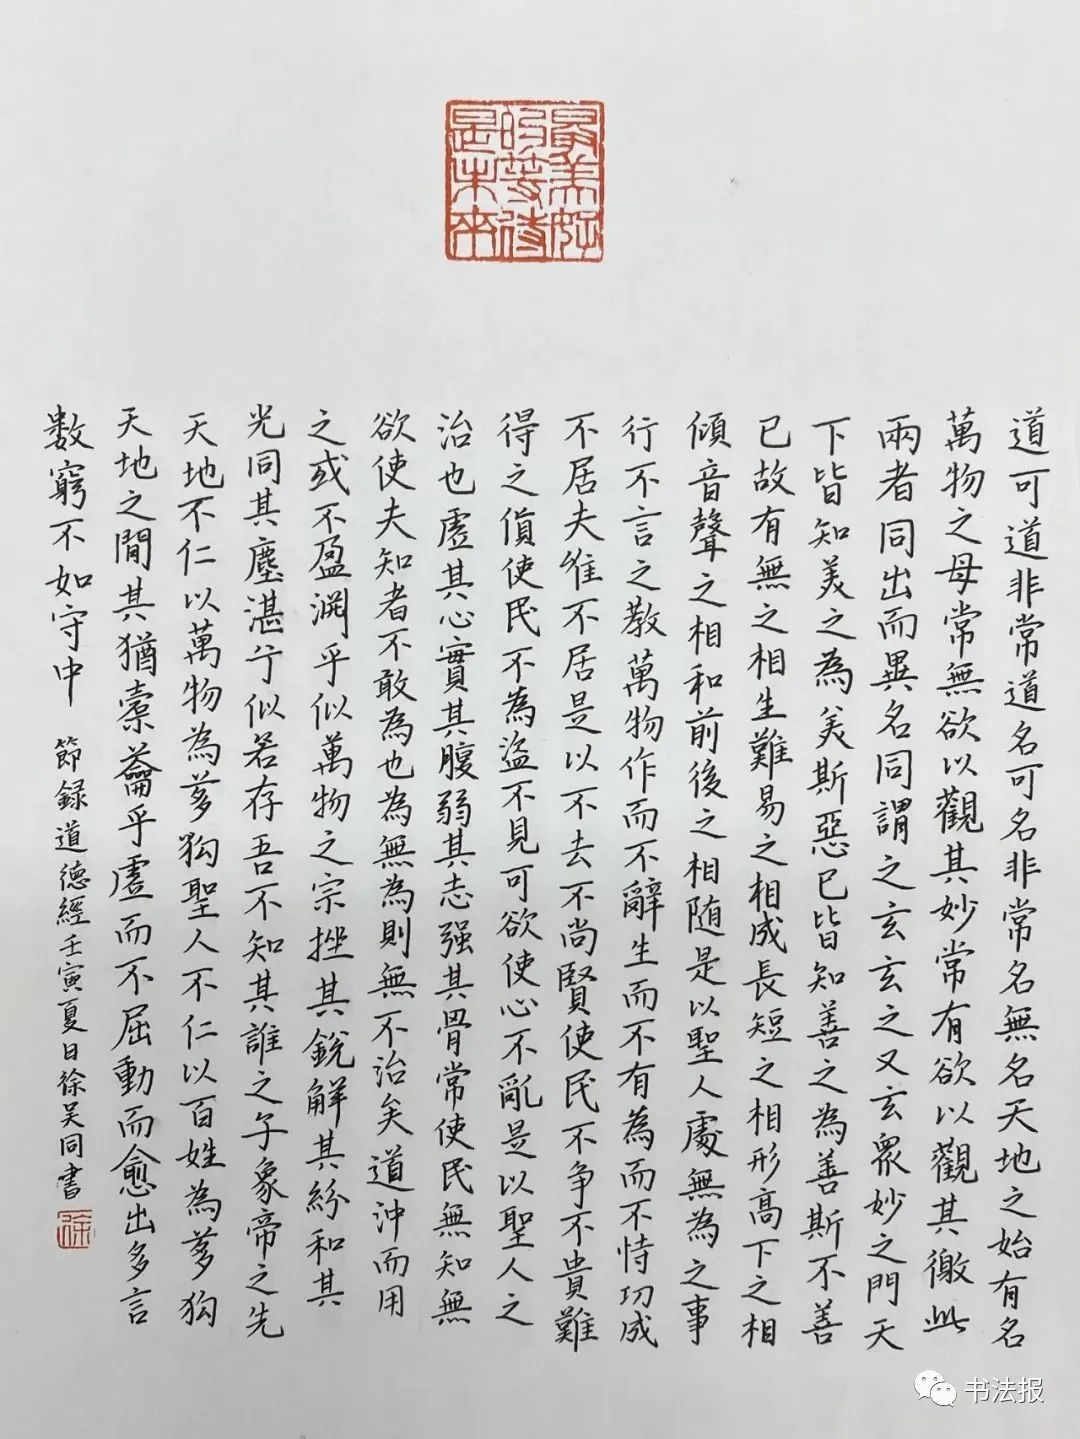 最美好
的等待
是未来
道可道非常道名可名非常名無名天地之始有名
萬物之母常無欲以觀其妙常有欲以觀其徼此
兩者同出而異名同謂之玄玄之又玄衆妙之門天
下皆知美之為美斯惡已皆知善之為善斯不善
已故有無之相生難易之相成長短之相形高下之相
傾音聲之相和前後之相随是以聖人處無為之事
行不言之教萬物作而不辭生而不有為而不恃功成
不居夫維不居是以不去不尚賢使民不争不貴難
得之貨使民不為盜不見可欲使心不亂是以聖人之
治也虛其心實其腹弱其志强其骨常使民無知無
欲使夫知者不敢為也為無為則無不治矣道沖而用
之或不盈淵乎似萬物之宗挫其銳解其紛和其
光同其塵湛兮似若存吾不知其誰之子象帝之先
天地不仁以萬物為芻狗聖人不仁以百姓為芻狗
天地之間其猶橐籥乎虛而不屈動而愈出多言
數窮不如守中 節録道德經壬寅夏日徐吴同書
徐
书法报